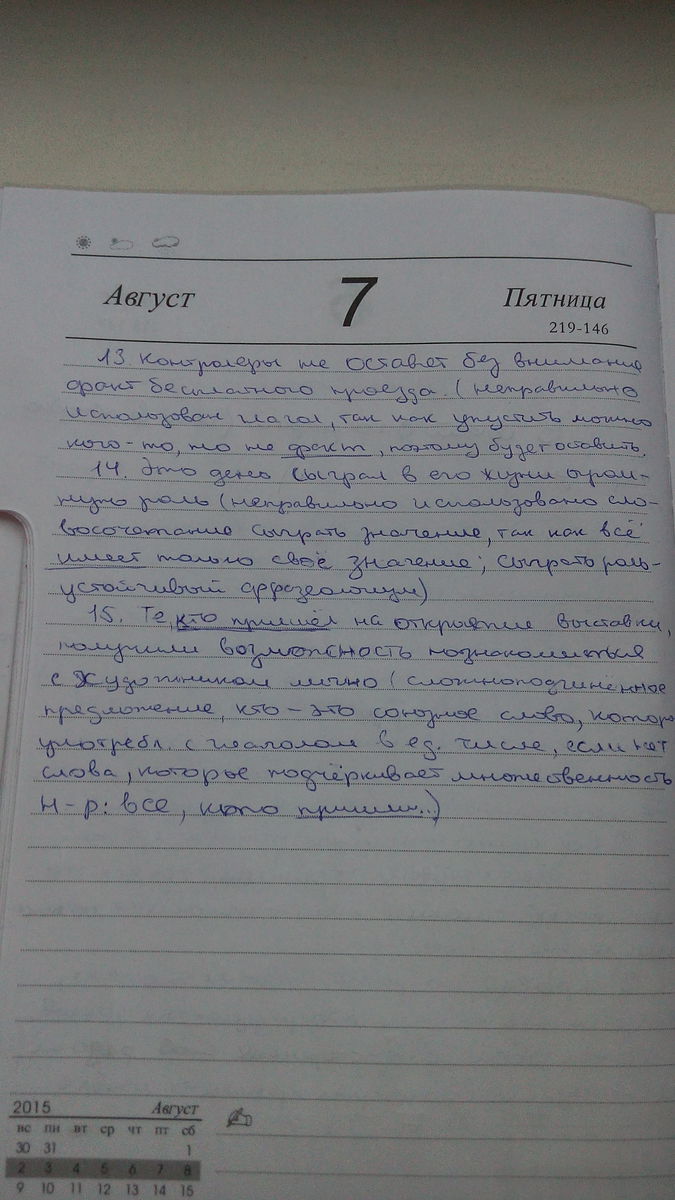 Август
7
Пятница
219-146
13. Контролеры не оставят без внимание
факт бесплатного проезда. (неправильно
использован глагол, так как упустить можно
кого-то, но не факт, поэтому будет оставить.
14. Это день сыграл в его жизни огром-
ную роль (неправильно использовано сло-
восочетание сыграть значение, так как всё
имеет только своё значение; сыграть роль-
устойчивый фразеологизм)
15. Те, кто пришёл на открытие выставки,
получили возможность познакомиться
с художником лично (сложноподчинённое
предложение, кто - это союзное слово, котор
употребл. с глаголом в ед. числе, если нет
слова, которое подчёркивает множественность
Н-р: все, кто пришли..)
2015 Август
вс пн вт ср чт пт сб
30 31 1
2 3 4 5 6 7 8
9 10 11 12 13 14 15